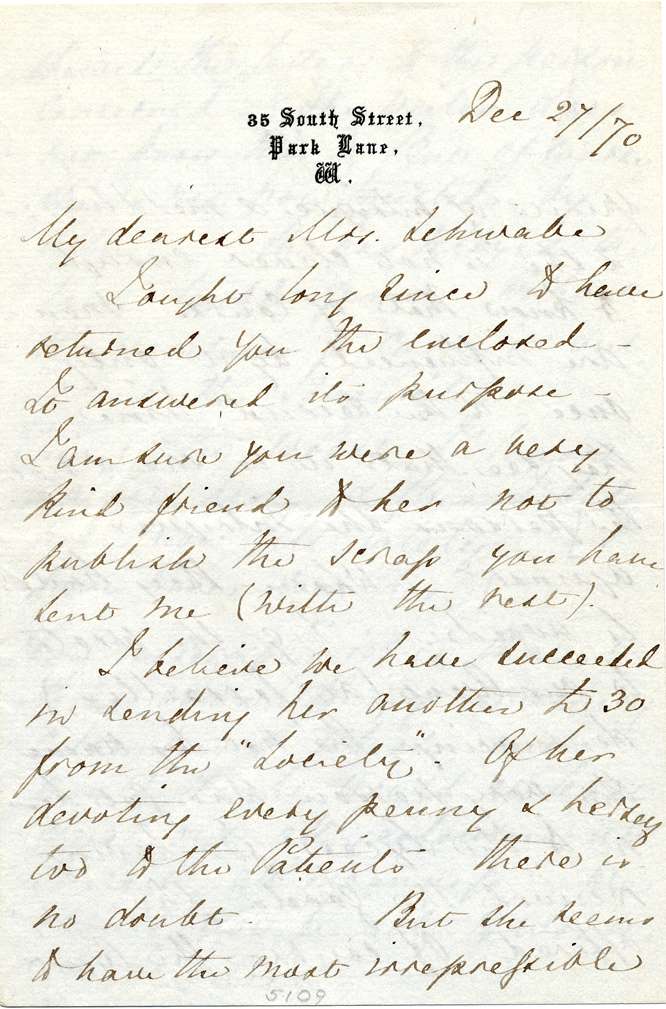 35 South Street,
Park Lane,
W.
Dec 27/70
My dearest Mrs. Schwabe
I ought long since to have
returned you the enclosed –
It answered its purpose –
I am sure you were a very
kind friend to her not to
publish the scrap you have
sent me (with the rest).
I believe we have succeeded
in sending her another £30
from the "Society". Of her
devoting every penny & herself
too to the Patients there is
no doubt. But she seems
to have the most irrepressible
5109